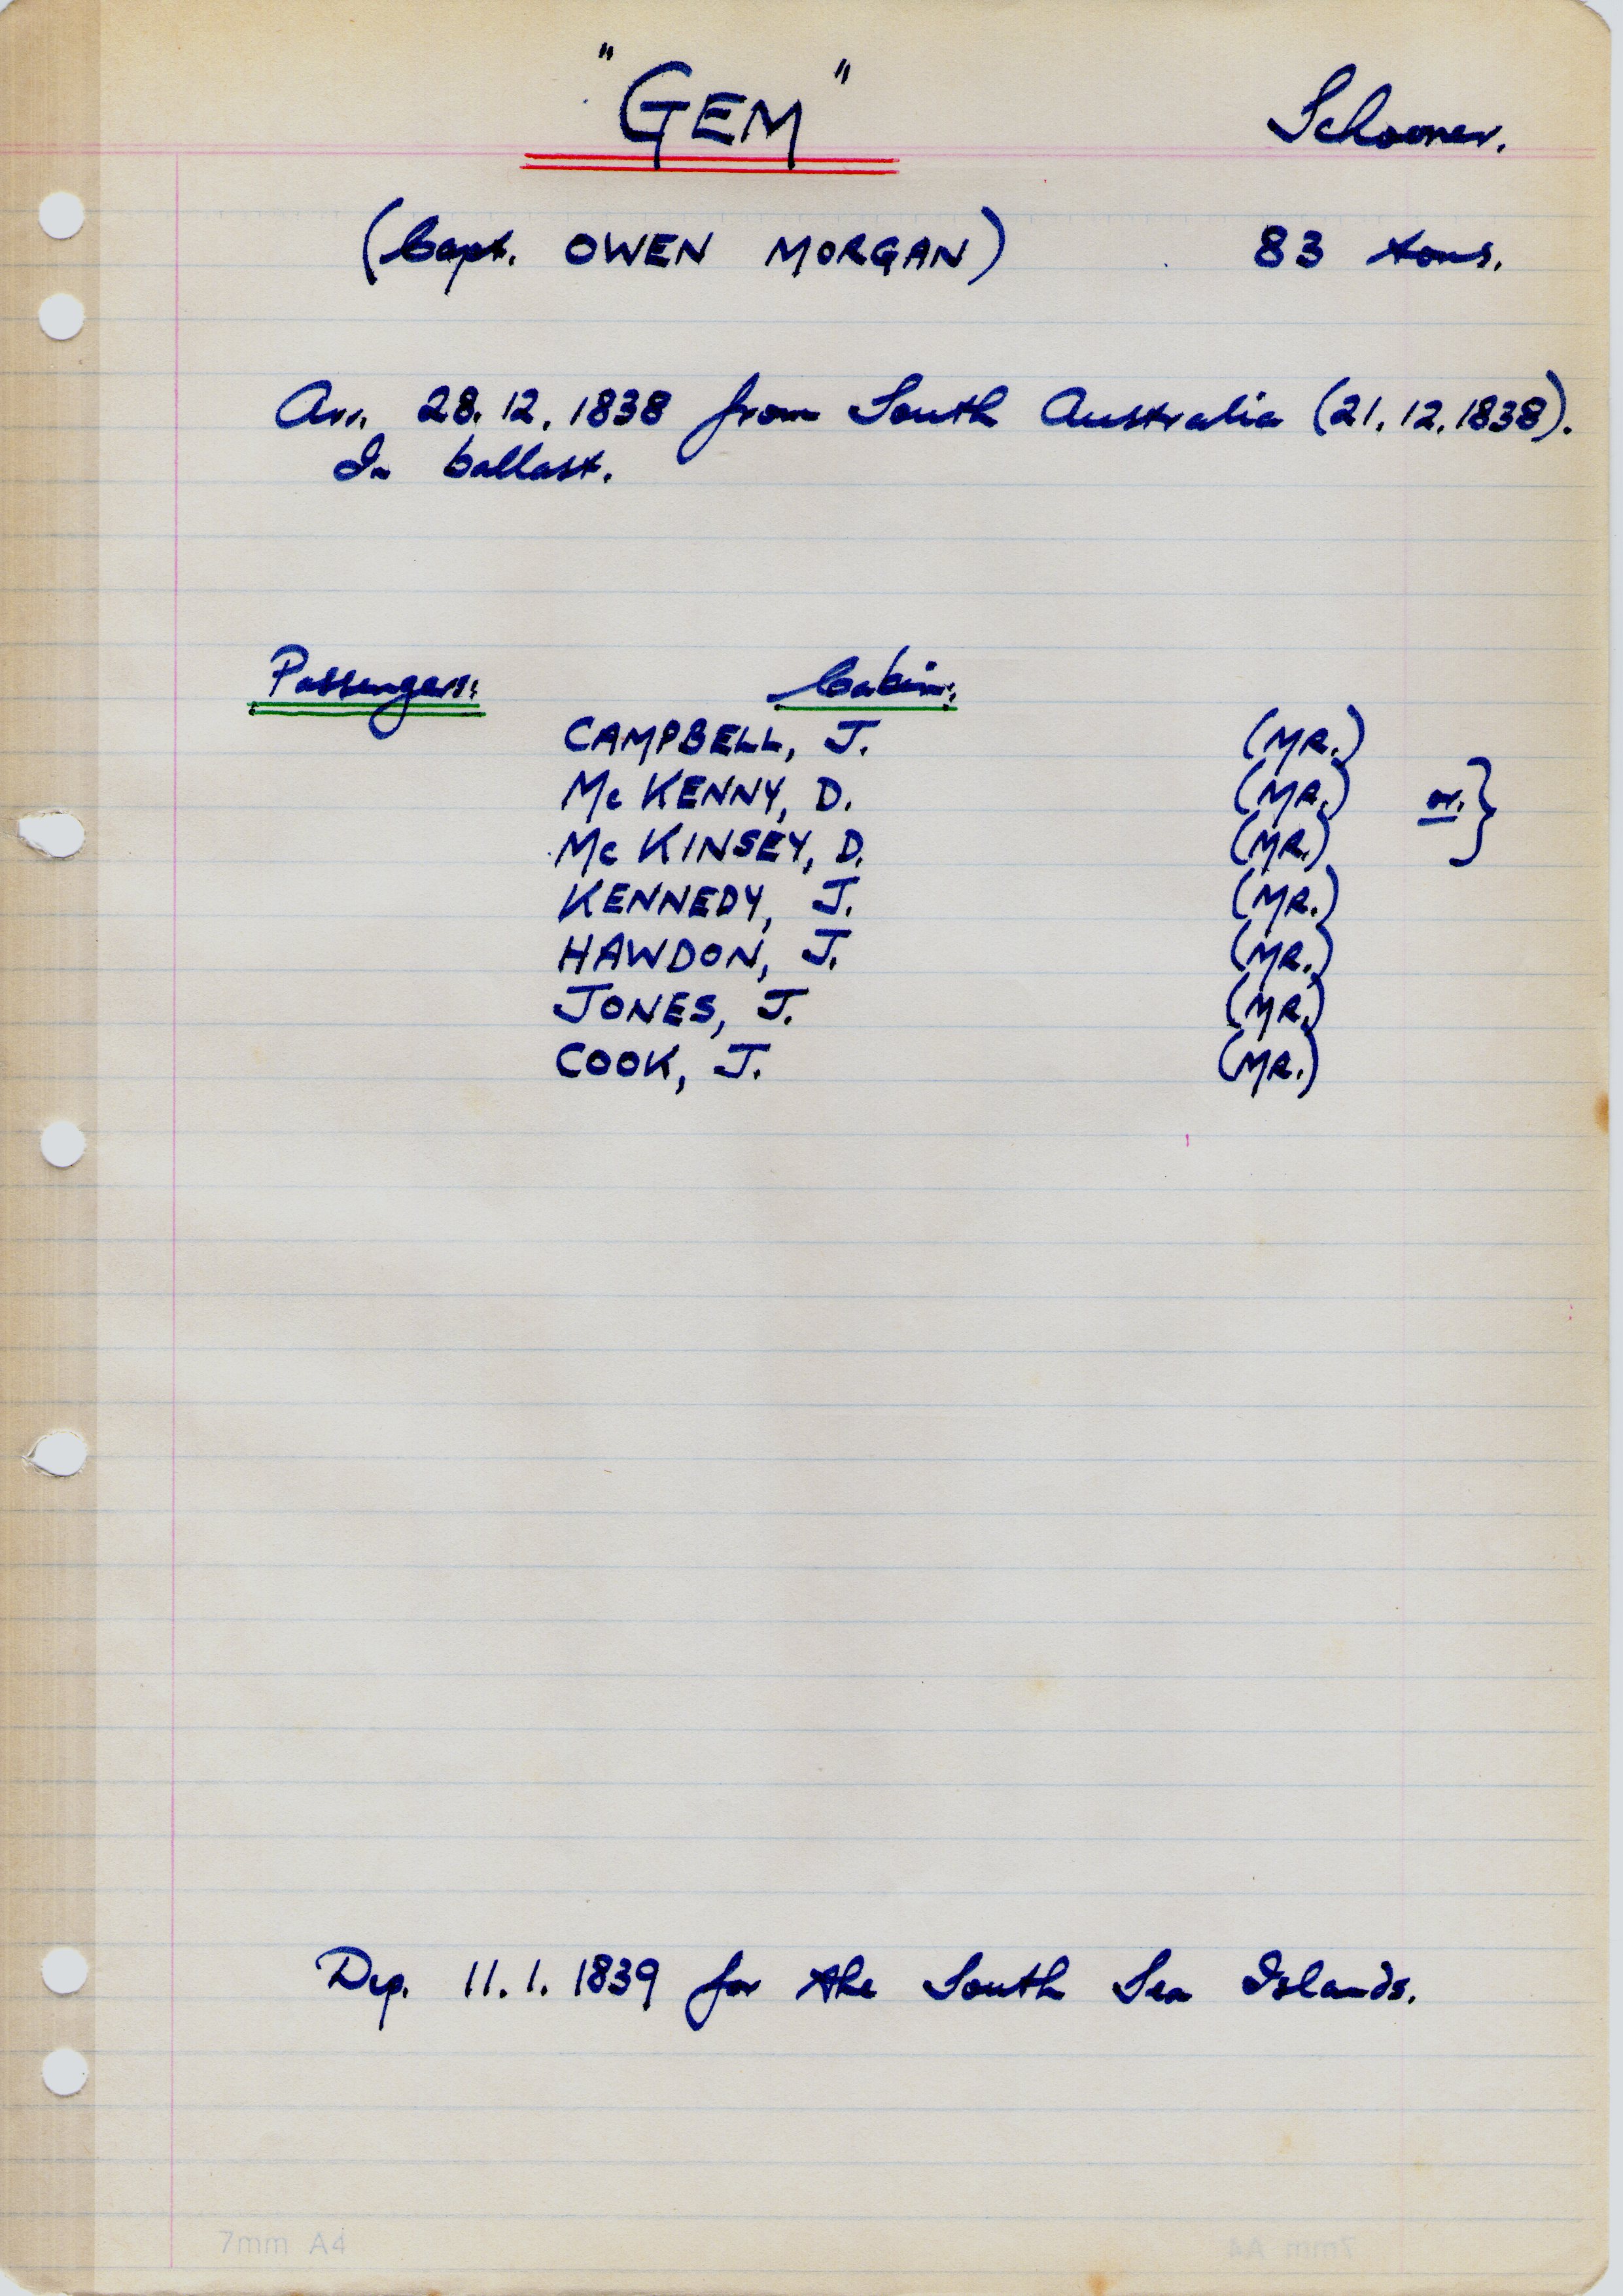 "GEM" Schooner.
(Capt. OWEN MORGAN) 83 tons.
Arr. 28.12.1838 from South Australia (21.12.1838).
In ballast.
Passengers: Cabin:
CAMPBELL, J. (MR.)
McKENNY, D. (MR.) or. }
McKINSEY, D. (MR.)
KENNEDY, J. (MR.)
HAWDON, J. (MR.)
JONES, J. (MR.)
COOK, J. (MR.)
Dep. 11.1.1839 for the South Sea Islands.
7mm A4
7mm A4